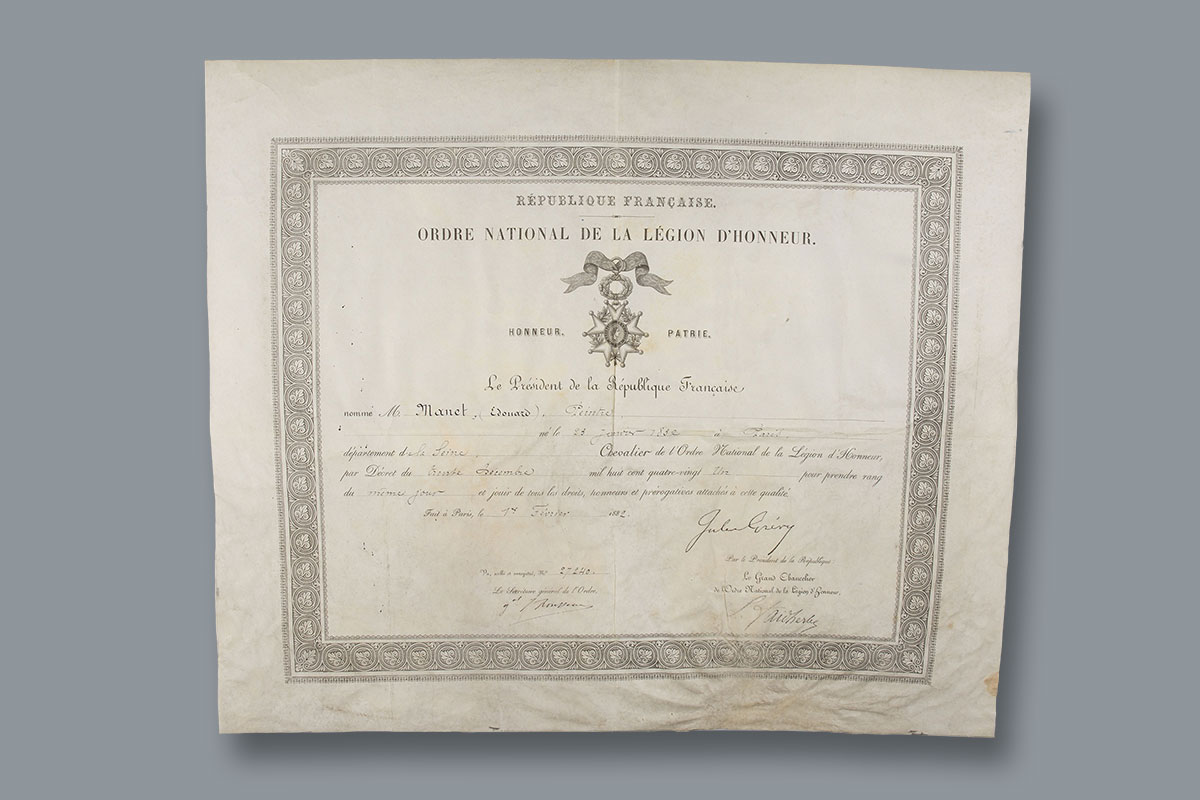 RÉPUBLIQUE FRANÇAISE.
ORDRE NATIONAL DE LA LÉGION D'HONNEUR.
HONNEUR. PATRIE.
Le Président de la République Française
nomme M. Manet, (Edouard), Peintre,
né le 23 janvier 1832 à Paris,
département de la Seine, Chevalier de l'Ordre National de la Légion d'Honneur,
par Décret du trente Décembre mil huit cent quatre-vingt Un pour prendre rang
du même jour et jouir de tous les droits, honneurs et prérogatives attachés à cette qualité.
Fait à Paris, le 1er Février 1882.
Jules Grévy
Par le Président de la République:
Vu, scellé et enregistré, No 27240.
Le Grand Chancelier
Le Secrétaire général de l'Ordre,
de l'Ordre National de la Légion d'Honneur,
gal Rousseau
L. Faidherbe